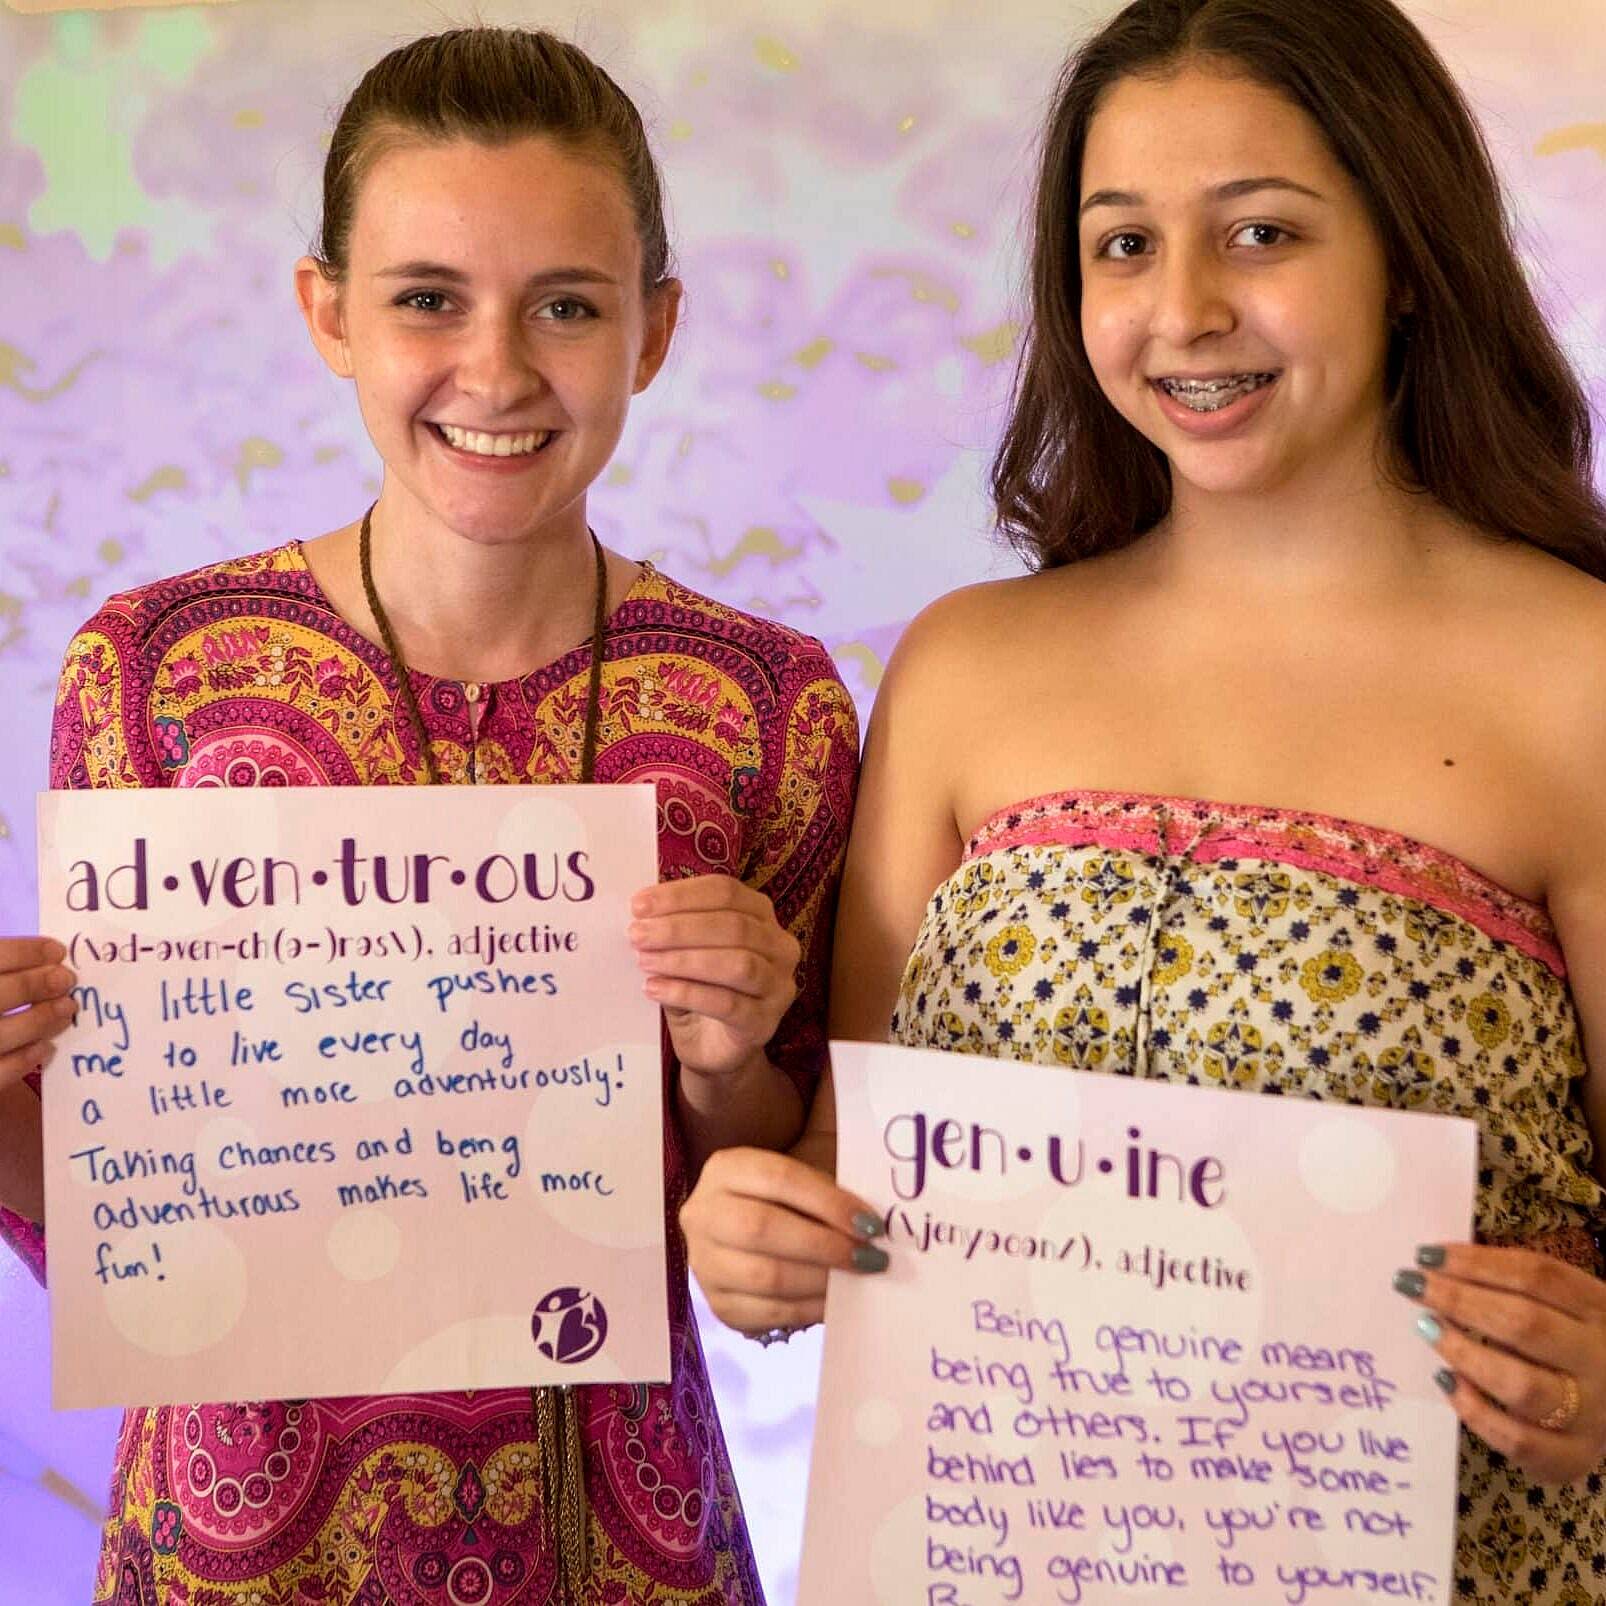 ad·ven·tur·ous
(\əd-əven-ch(ə-)rəs\). adjective
My little sister pushes
me to live every day
a little more adventurously!
Taking chances and being
adventurous makes life more
fun!
gen·u·ine
(\jenyəcən/). adjective
Being genuine means
being true to yourself
and others. If you live
behind lies to make some-
body like you, you're not
being genuine to yourself.